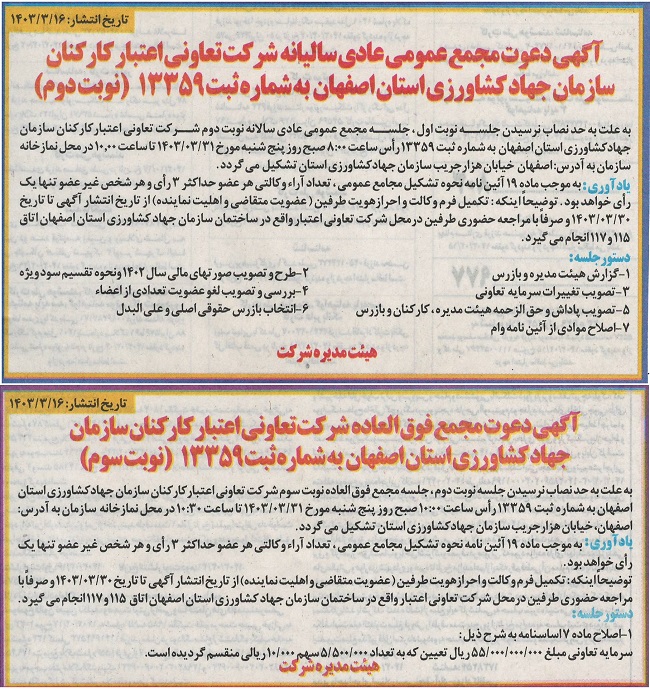 تاریخ انتشار: ۱۴۰۳/۳/۱۶
آگهی دعوت مجمع عمومی عادی سالیانه شرکت تعاونی اعتبار کارکنان
سازمان جهاد کشاورزی استان اصفهان به شماره ثبت ۱۳۳۵۹ (نوبت دوم)
به علت به حد نصاب نرسیدن جلسه نوبت اول، جلسه مجمع عمومی عادی سالانه نوبت دوم شرکت تعاونی اعتبار کارکنان سازمان
جهاد کشاورزی استان اصفهان به شماره ثبت ۱۳۳۵۹ رأس ساعت ۸:۰۰ صبح روز پنج شنبه مورخ ۱۴۰۳/۰۳/۳۱ تا ساعت ۱۰,۰۰ در محل نمازخانه
سازمان به آدرس: اصفهان خیابان هزار جریب سازمان جهاد کشاورزی استان اصفهان تشکیل می گردد.
یادآوری: به موجب ماده ۱۹ آئین نامه نحوه تشکیل مجامع عمومی، تعداد آراء وکالتی هر عضو حداکثر ۳ رأی و هر شخص غیر عضو تنها یک
رأی خواهد بود. توضیحا اینکه: تکمیل فرم وکالت و احراز هویت طرفین (عضویت متقاضی و اهلیت نماینده) از تاریخ انتشار آگهی تا تاریخ
۱۴۰۳/۰۳/۳۰ و صرفا با مراجعه حضوری طرفین در محل شرکت تعاونی اعتبار واقع در ساختمان سازمان جهاد کشاورزی استان اصفهان اتاق
۱۱۵ و ۱۱۷ انجام می گیرد.
دستور جلسه:
۱-گزارش هیئت مدیره و بازرس
۲-طرح و تصویب صورتهای مالی سال ۱۴۰۲ و نحوه تقسیم سود ویژه
۳-تصویب تغییرات سرمایه تعاونی
۴-بررسی و تصویب لغو عضویت تعدادی از اعضاء
۵-تصویب پاداش و حق الزحمه هیئت مدیره، کارکنان و بازرس
۶-انتخاب بازرس حقوقی اصلی و علی البدل
۷-اصلاح موادی از آئین نامه وام
هیئت مدیره شرکت
تاریخ انتشار: ۱۴۰۳/۳/۱۶
آگهی دعوت مجمع فوق العاده شرکت تعاونی اعتبار کارکنان سازمان
جهاد کشاورزی استان اصفهان به شماره ثبت ۱۳۳۵۹ (نوبت سوم)
به علت به حد نصاب نرسیدن جلسه نوبت دوم، جلسه مجمع فوق العاده نوبت سوم شرکت تعاونی اعتبار کارکنان سازمان جهاد کشاورزی استان
اصفهان به شماره ثبت ۱۳۳۵۹ رأس ساعت ۱۰:۰۰ صبح روز پنج شنبه مورخ ۱۴۰۳/۰۳/۳۱ تا ساعت ۱۰:۳۰ در محل نمازخانه سازمان به آدرس:
اصفهان، خیابان هزار جریب سازمان جهاد کشاورزی استان اصفهان تشکیل می گردد.
یادآوری: به موجب ماده ۱۹ آئین نامه نحوه تشکیل مجامع عمومی، تعداد آراء وکالتی هر عضو حداکثر ۳ رأی و هر شخص غیر عضو تنها یک
رأی خواهد بود.
توضیحا اینکه: تکمیل فرم وکالت و احراز هویت طرفین (عضویت متقاضی و اهلیت نماینده) از تاریخ انتشار آگهی تا تاریخ ۱۴۰۳/۰۳/۳۰ و صرفا با
مراجعه حضوری طرفین در محل شرکت تعاونی اعتبار واقع در ساختمان سازمان جهاد کشاورزی استان اصفهان اتاق ۱۱۵ و ۱۱۷ انجام می گیرد.
دستور جلسه:
۱-اصلاح ماده ۷ اساسنامه به شرح ذیل:
سرمایه تعاونی مبلغ ۵۵/۰۰۰/۰۰۰/۰۰۰ ریال تعیین که به تعداد ۵/۵۰۰/۰۰۰ سهم ۱۰/۰۰۰ ریالی منقسم گردیده است.
هیئت مدیره شرکت